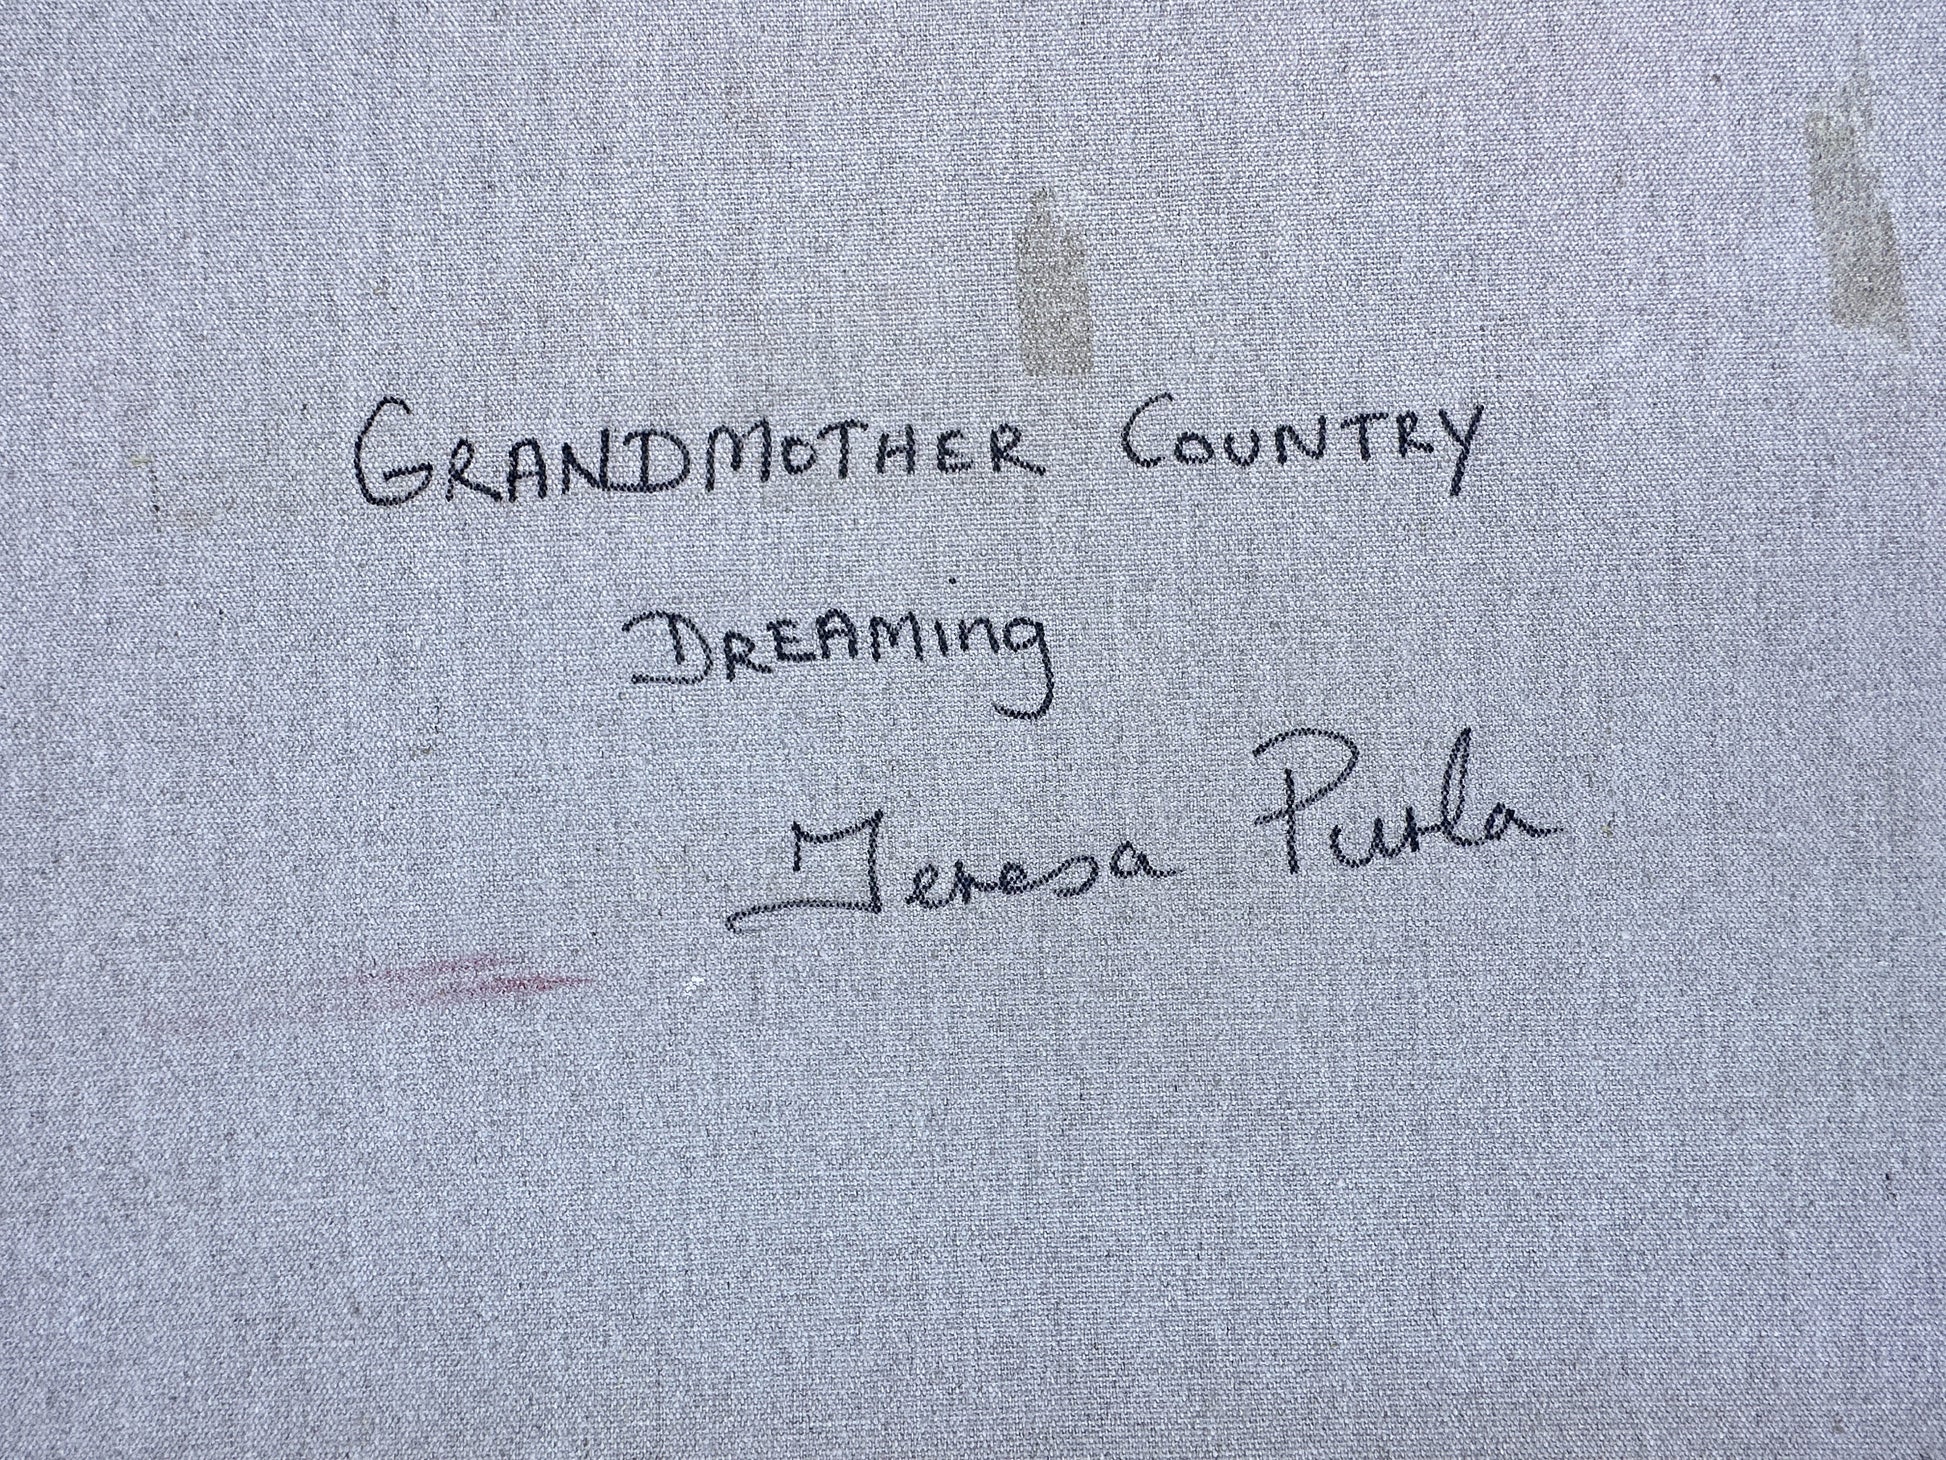 GRANDMOTHER COUNTRY
DREAMing
Teresa Purla